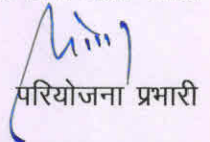 परियोजना प्रभारी